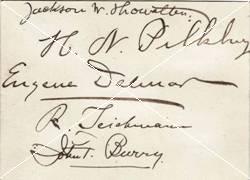 Jackson W. Showalter.
H. N. Pillsbury
Eugene Delmar
R. Teichmann
John F. Barry.